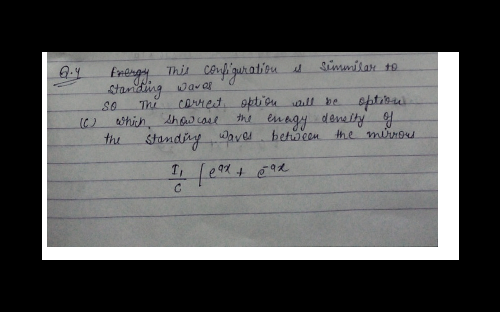 Q.4 Energy This configuration is simmilar to
standing waves
SO The correct option will be option
(c) which showcase the energy density of
the standing waves between the mirrors
I₁/c [e^{ax} + e^{-ax}